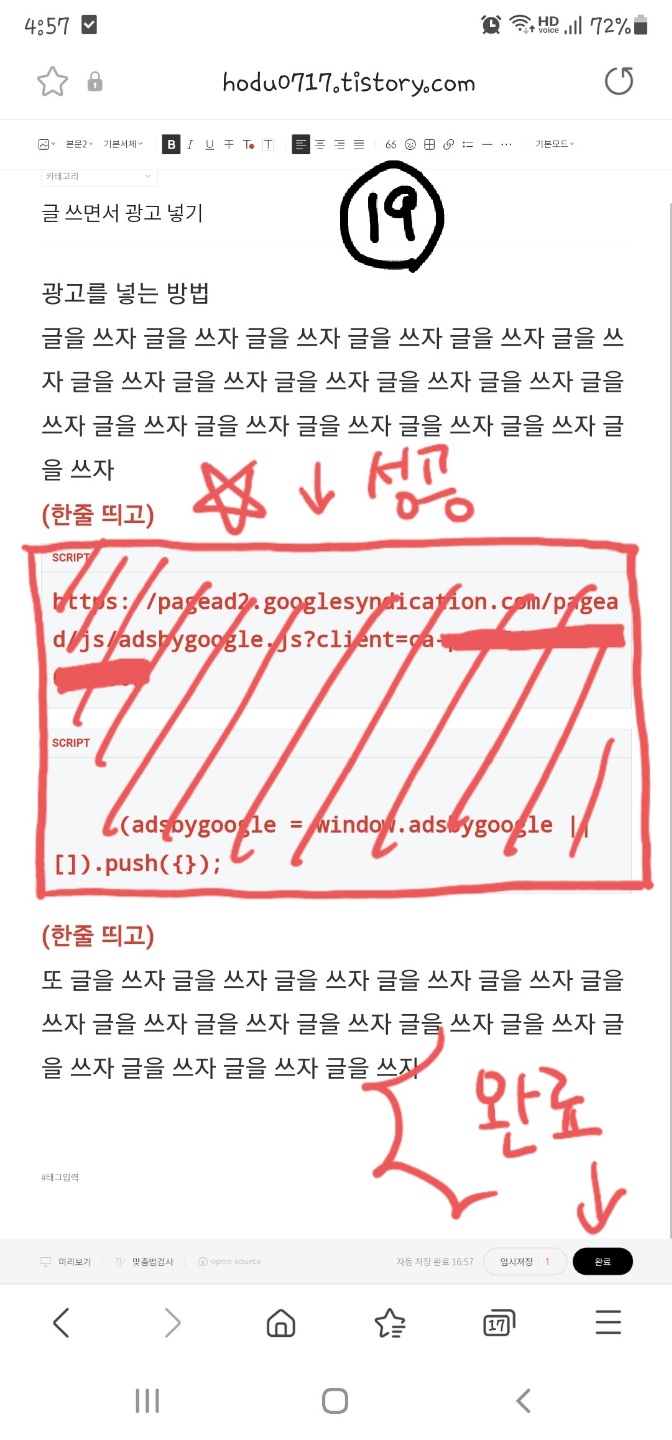 4:57 HD voice 72%
hodu0717.tistory.com
본문2 기본서체 B I U T T T 66 기본모드
카테고리
19
글 쓰면서 광고 넣기
광고를 넣는 방법
글을 쓰자 글을 쓰자 글을 쓰자 글을 쓰자 글을 쓰자 글을 쓰
자 글을 쓰자 글을 쓰자 글을 쓰자 글을 쓰자 글을 쓰자 글을
쓰자 글을 쓰자 글을 쓰자 글을 쓰자 글을 쓰자 글을 쓰자 글
을 쓰자
성공
(한줄 띄고)
SCRIPT
https://pagead2.googlesyndication.com/pagea
d/js/adsbygoogle.js?client=ca-
SCRIPT
(adsbygoogle = window.adsbygoogle ||
[]).push({});
(한줄 띄고)
또 글을 쓰자 글을 쓰자 글을 쓰자 글을 쓰자 글을 쓰자 글을
쓰자 글을 쓰자 글을 쓰자 글을 쓰자 글을 쓰자 글을 쓰자 글
을 쓰자 글을 쓰자 글을 쓰자 글을 쓰자
완료
#태그입력
미리보기 맞춤법검사 open source 자동 저장 완료 16:57 임시저장 1 완료
17